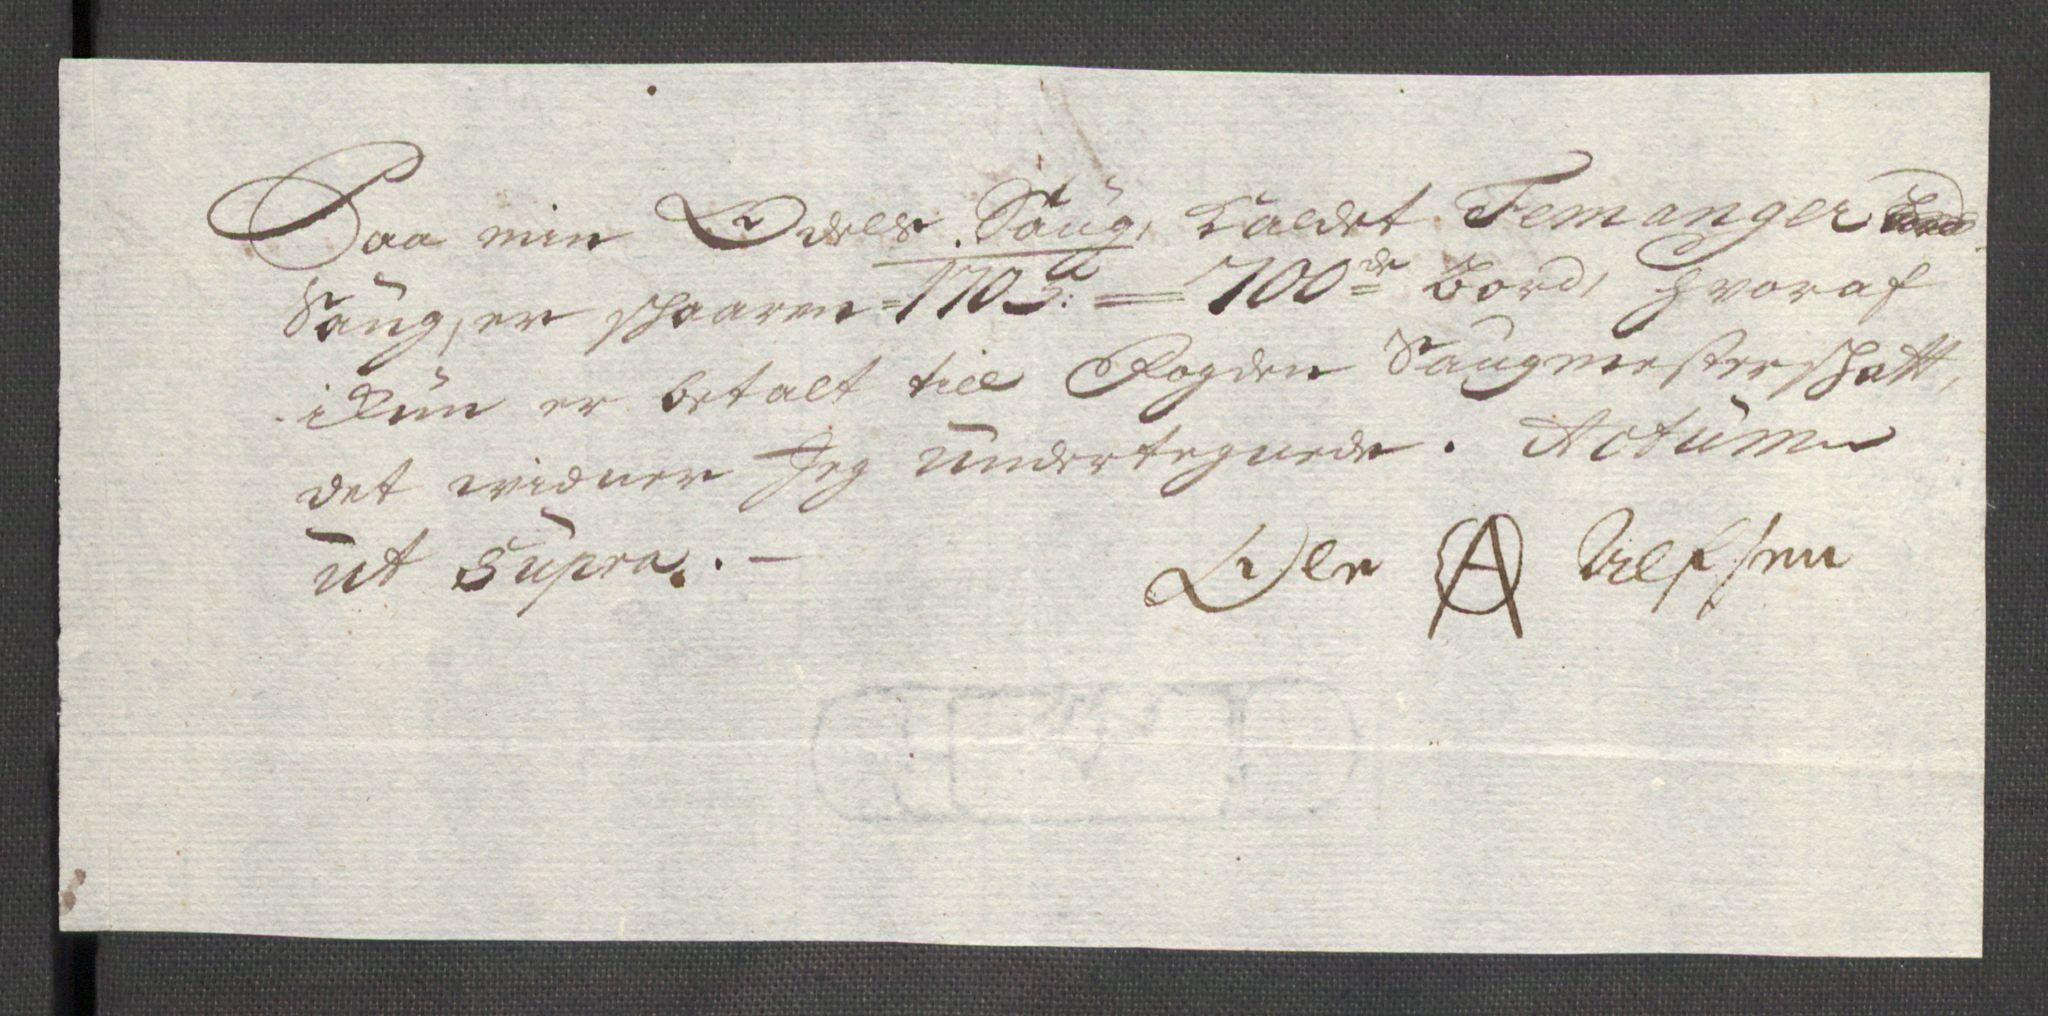 Paa min Odels Saug, kaldet Femanger
Saug, er schaaren 1705: 700de Bord, hvoraf
ickun er betalt till Fogden Saugmesterschatt,
det widner Jeg Undertegnede. Actum
ut supra.
Ole A Ulfsen